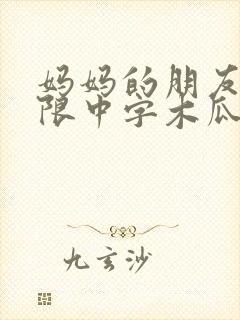 妈妈的朋友
限中字木瓜
九玄沙